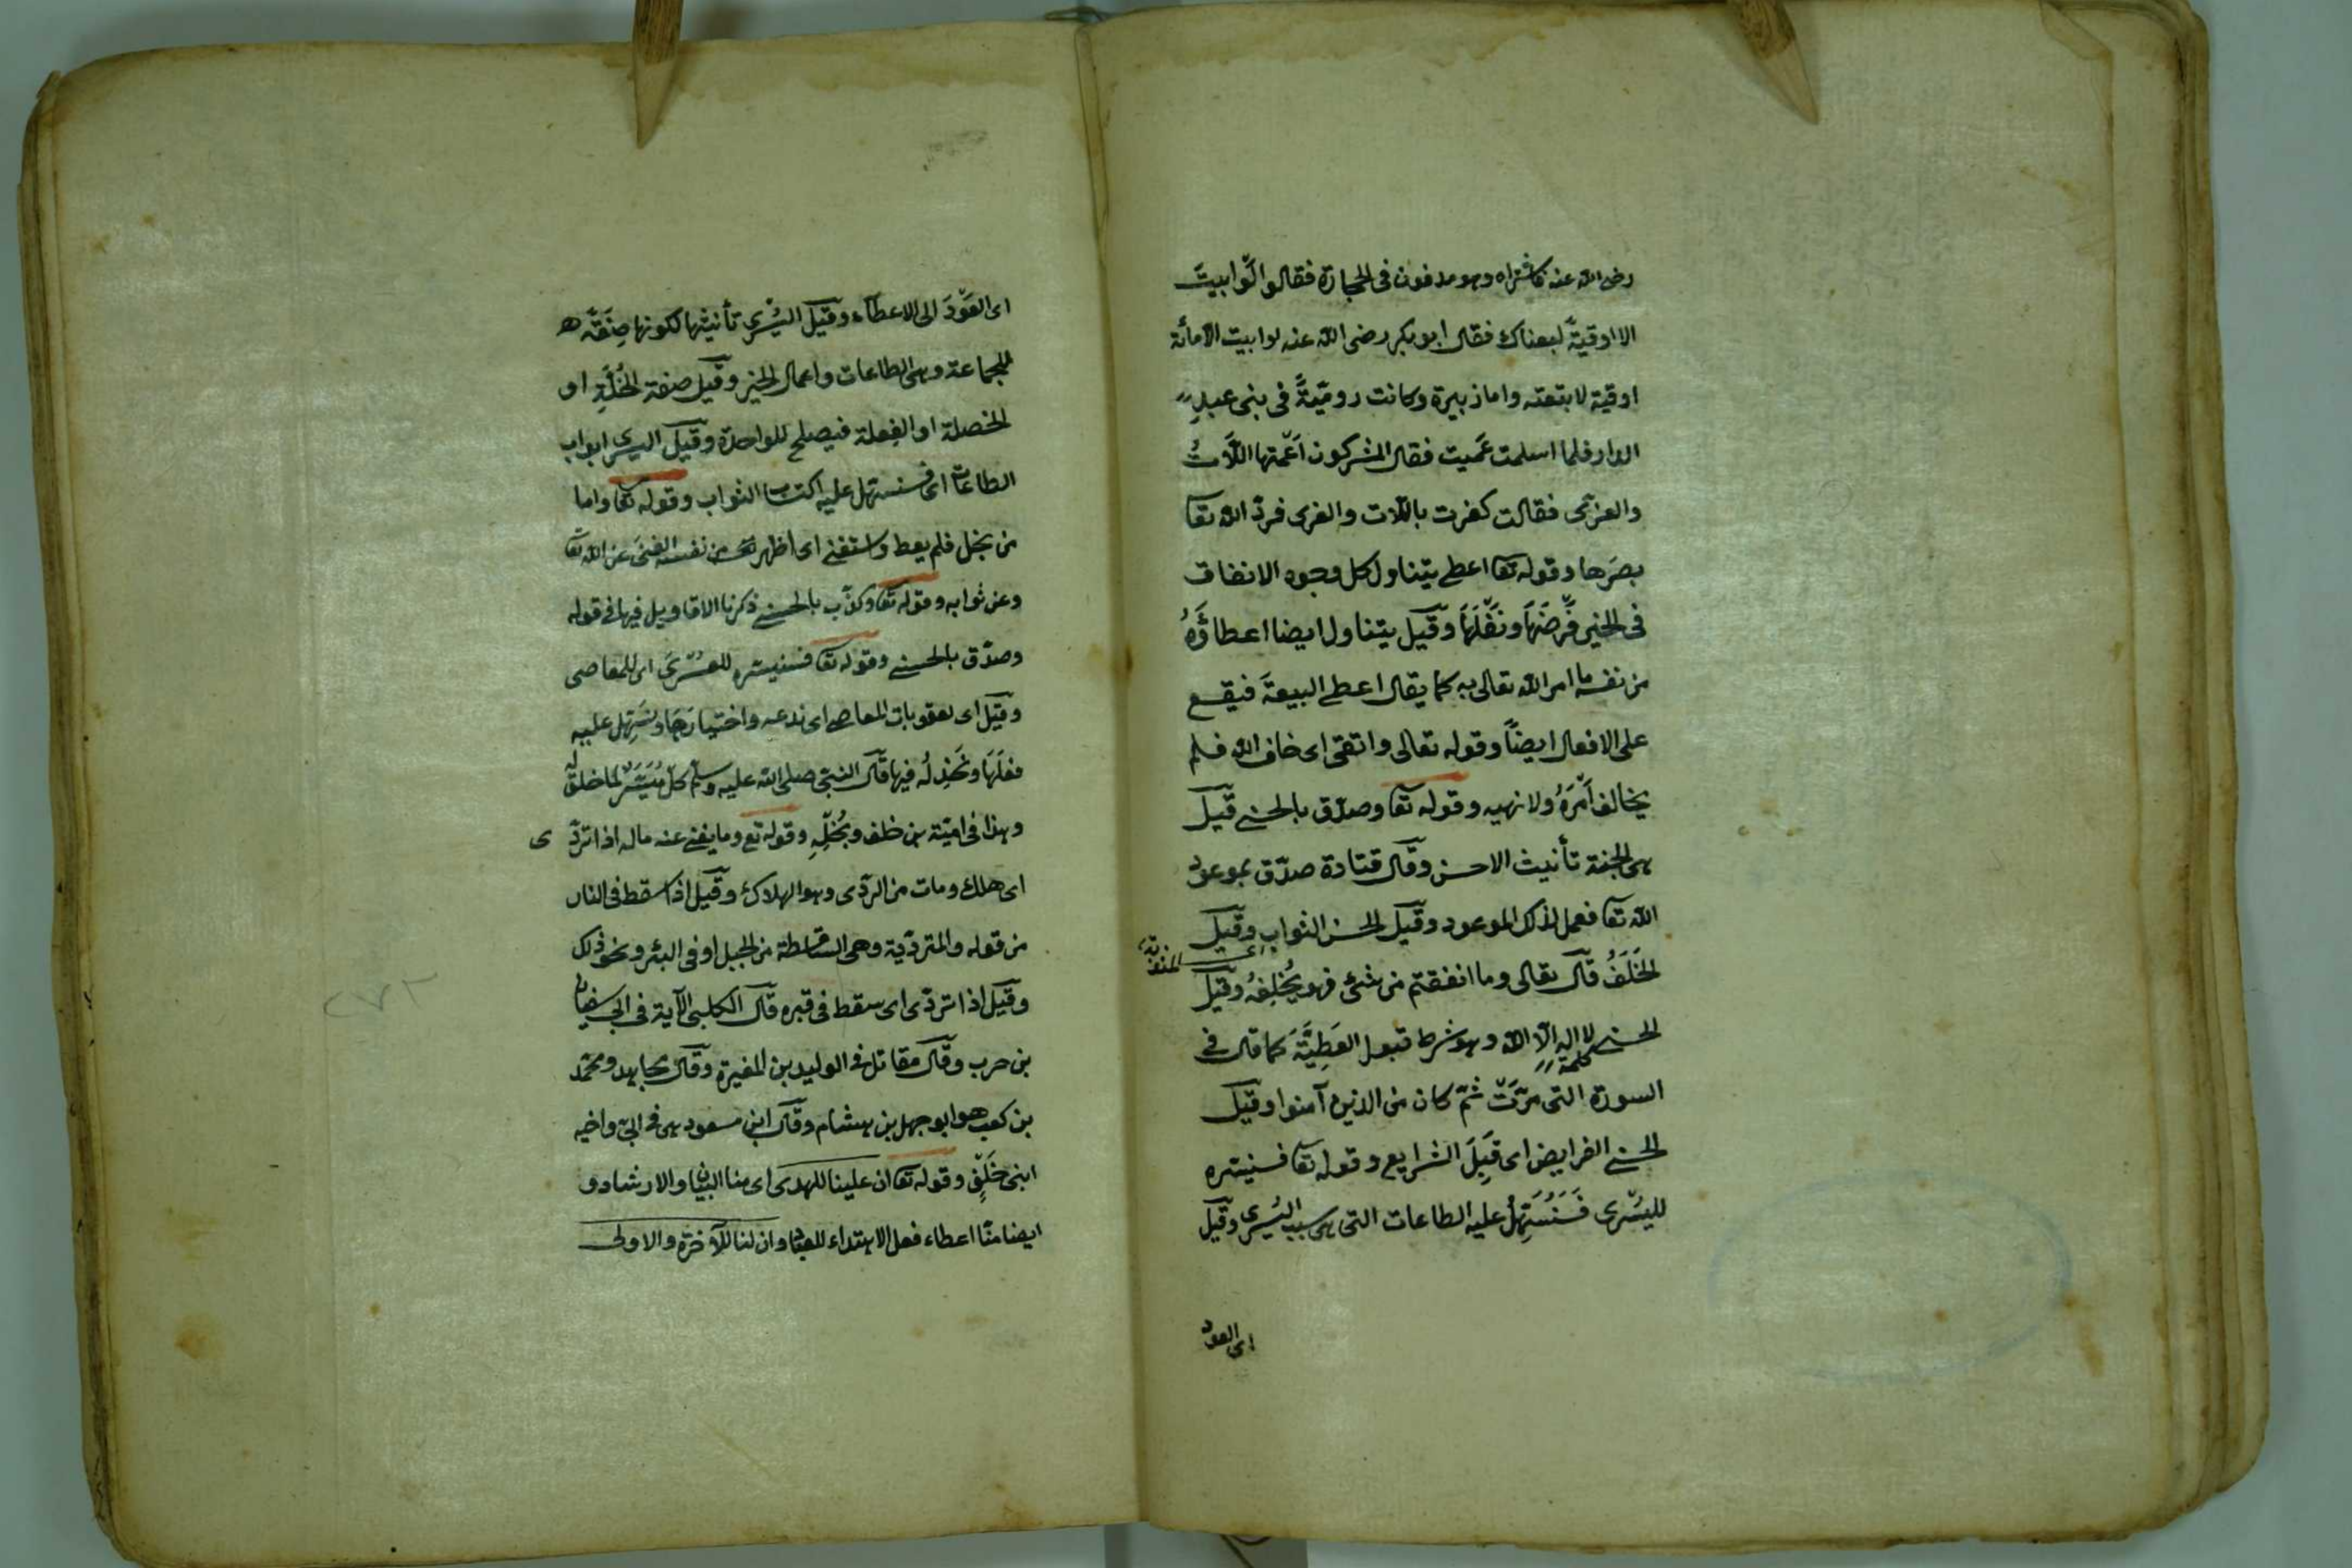 رضى الله عنه فاشتراه وهو مدفون فى الحجارة فقالوا لو ابيتَ
الا اوقيةً لبعناك فقال ابو بكر رضى الله عنه لو ابيت الا مائة
اوقية لابتعته واما زبيرة وكانت روميّةً فى بنى عبد
الدار فلما اسلمت عَميت فقال المشركون اَعْمتها اللّاتُ
والعزّى فقالت كفرت باللّات والعزى فردّ الله تعا
بصَرها وقوله تعا اعطى يتناول كل وجوه الانفاق
فى الخير فَرْضَهَا ونَفْلَهَا وقيل يتناول ايضا اعطاؤَهُ
من نفسه ما امر الله تعالى به كما يقال اعطى البيعةَ فيقع
على الافعال ايضاً وقوله تعالى واتقى اى خاف الله فلم
يخالف اَمْرَهُ ولا نهيه وقوله تعا وصدّق بالحسنى قيل
هى الجنة تأنيث الاحسن وقال قتادة صدّق بموعود
الله تعا فعمل لذلك الموعود وقيل الحسن الثواب وقيل
الخَلَفُ قال تعالى وما انفقتم من شئ فهو يُخْلِفُهُ وقيل
الحسنى كلمة لا اله الّا الله وهو شرط قبول العَطِيَّةَ كما قال فى
السورة التى مَرّتْ ثمّ كان من الذين آمنوا وقيل
الحسنى الفرايض اى قَبِلَ الشرايع وقوله تعا فسنيسّره
لليسْرى فَسَنُسَهِّلُ عليه الطاعات التى هى سبب اليُسرى وقيل
اى العود
اى العَوْدَ الى الاعطاء وقيل اليُسْرى تأنيثها لكونها صِفَةً
للجماعة وهى الطاعات واعمال الخير وقيل صفة الخُلَّةِ او
الخصلة او الفِعلة فيصلح للواحدة وقيل اليسرى ابواب
الطاعات اى فسنسهّل عليه اكتساب الثواب وقوله تعا واما
من بخل فلم يعط واستغنى اى اظهر من نفسه الغِنى عن الله تعا
وعن ثوابه وقوله تعا وكذّب بالحسنى ذكرنا الاقاويل فيها فى قوله
وصدّق بالحسنى وقوله تعا فسنيسّره للعُسْرَى اى للمعاصى
وقيل اى لعقوبات المعاصى اى ندعه واختيارَهَا ونسَهِّل عليه
فعلَهَا ونَخْذِلُه فيها قال النبىّ صلى الله عليه وسلم كلٌّ مُيَسَّرٌ لما خلق له
وهذا فى اميّة بن خلف وبُخْلِهِ وقوله تع وما يغنى عنه ماله اذا تردّى
اى هلك ومات من الردّى وهو الهلاك وقيل اذا سقط فى النار
من قوله والمتردّية وهى الساقطة من الجبل او فى البئر ونحو ذلك
وقيل اذا تردّى اى سقط فى قبره قال الكلبى الآية فى ابى سفيان
بن حرب وقال مقاتل فى الوليد بن المغيرة وقال مجاهد ومحمّد
بن كعب هو ابو جهل بن هشام وقال ابن مسعود هى فى ابىّ واخيه
ابنى خَلَفٍ وقوله تعا ان علينا للهدى اى منا البيان والارشاد و
ايضا منّا اعطاء فعل الاهتداء للعباد وان لنا للآخرة والاولى
٢٧٢